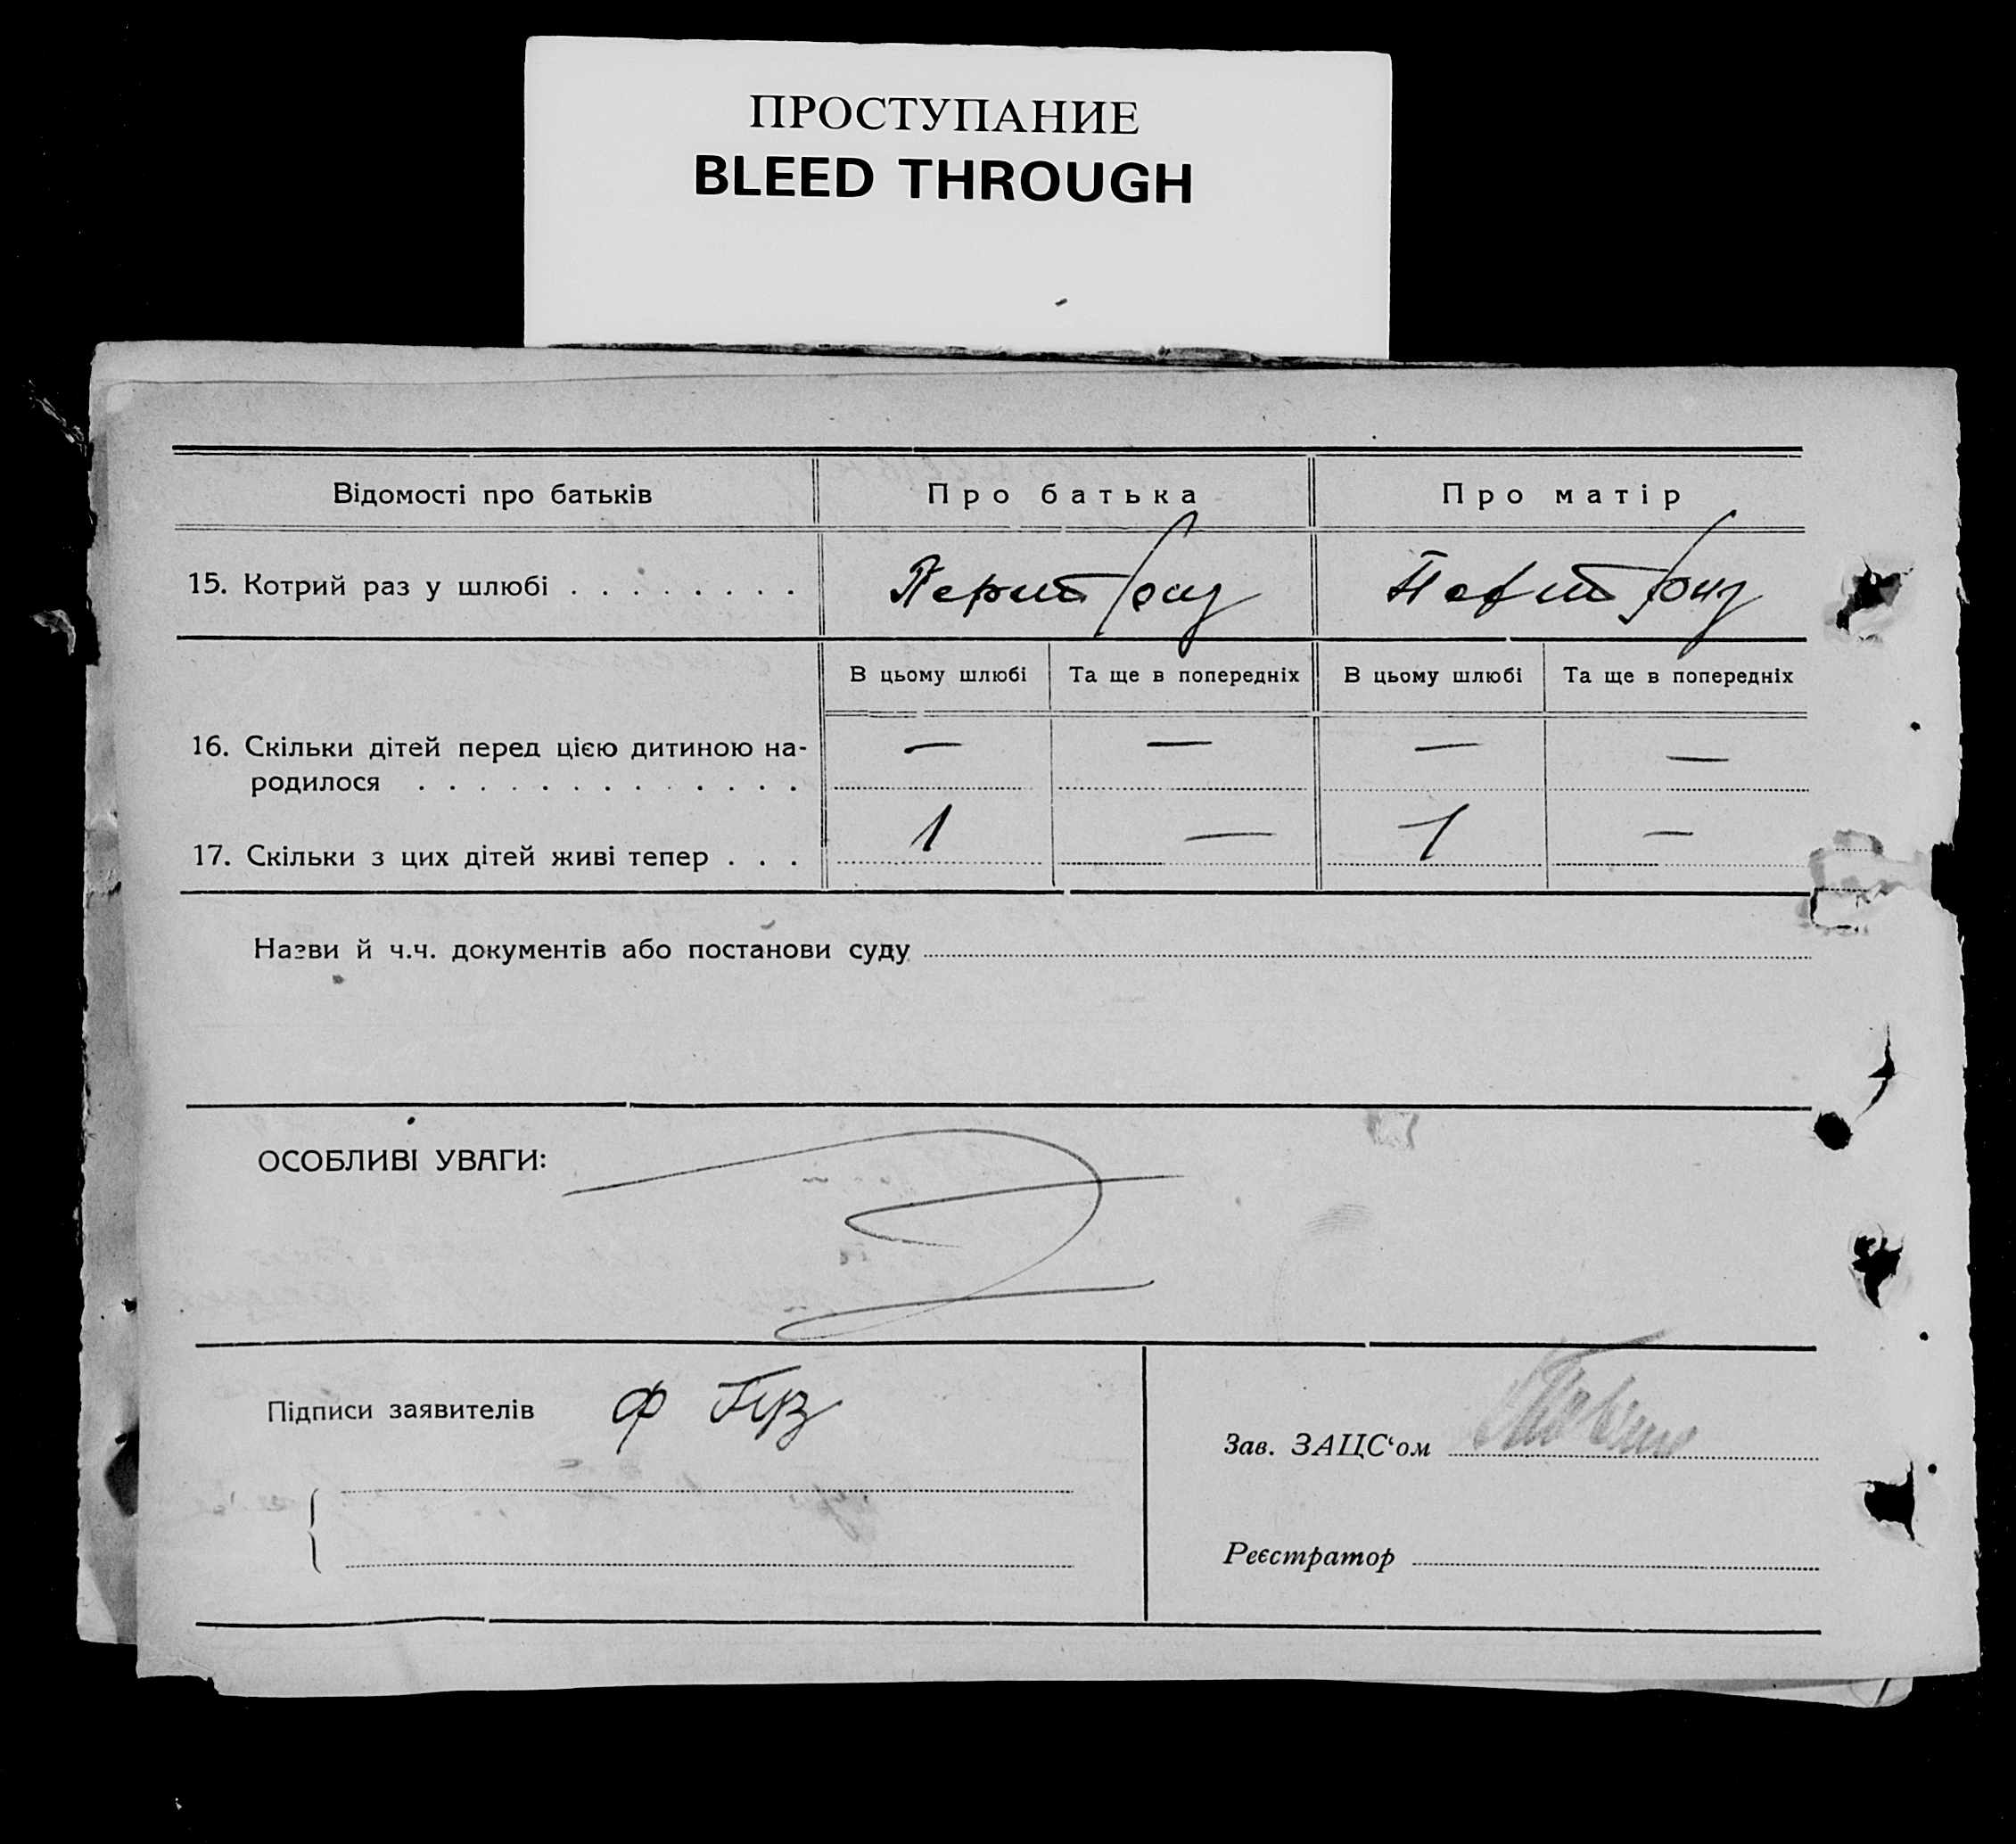 ПРОСТУПАНИЕ
BLEED THROUGH
Відомості про батьків Про батька Про матір
15. Котрий раз у шлюбі . . . . . . . . Перший раз Перший раз
В цьому шлюбі Та ще в попередніх В цьому шлюбі Та ще в попередніх
16. Скільки дітей перед цією дитиною на- — — — —
родилося . . . . . . . . . . . . .
17. Скільки з цих дітей живі тепер . . . 1 — 1 —
Назви й ч.ч. документів або постанови суду
ОСОБЛИВІ УВАГИ:
Підписи заявителів Ф
Зав. ЗАЦС‘ом
Реєстратор